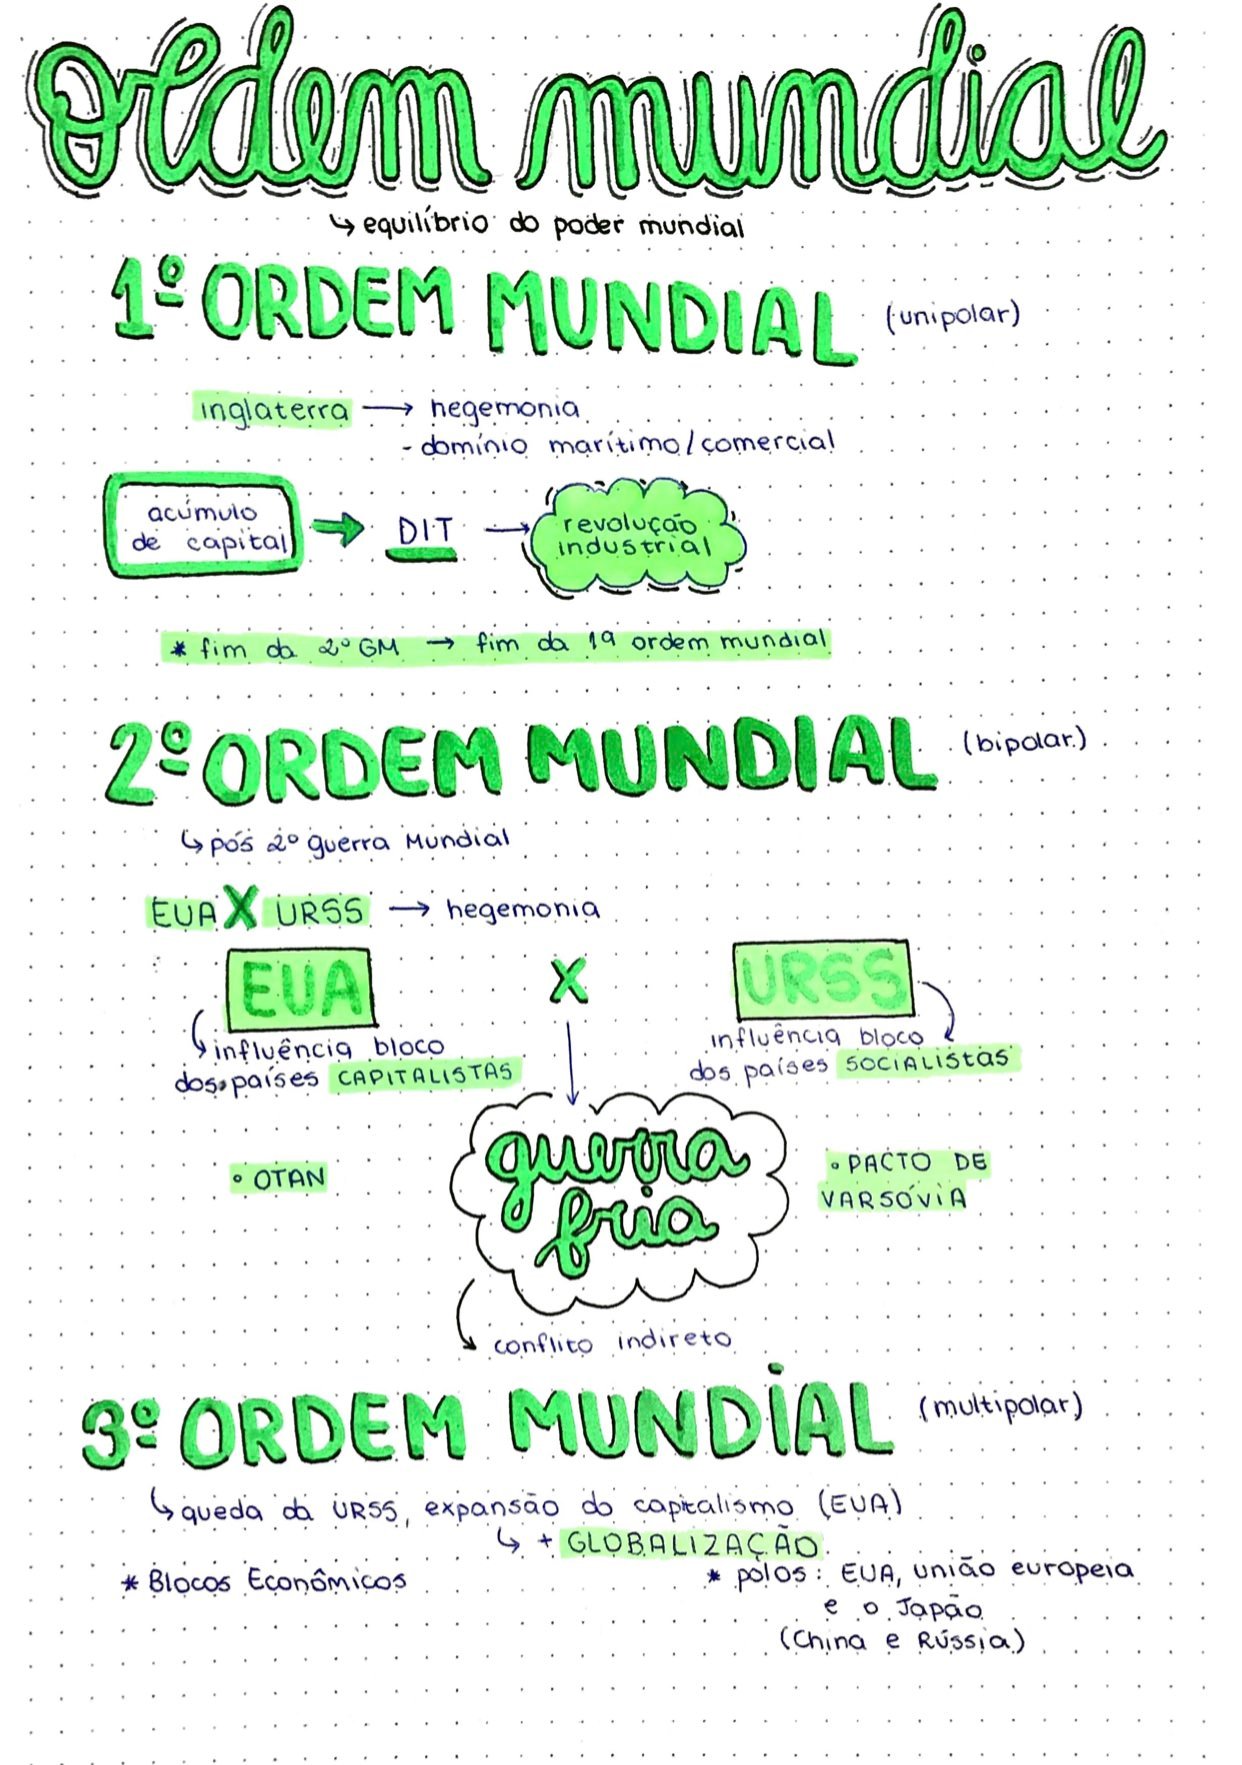 Ordem mundial
↳ equilíbrio do poder mundial
1º ORDEM MUNDIAL (unipolar)
inglaterra → hegemonia
- domínio marítimo/comercial
acúmulo
de capital → DIT → revolução
industrial
* fim da 2º GM → fim da 1ª ordem mundial
2º ORDEM MUNDIAL (bipolar)
↳ pós 2º guerra Mundial
EUA X URSS → hegemonia
EUA X URSS
influência bloco
dos países CAPITALISTAS
influência bloco
dos países SOCIALISTAS
guerra
fria
• OTAN
• PACTO DE
VARSÓVIA
conflito indireto
3º ORDEM MUNDIAL (multipolar)
↳ queda da URSS, expansão do capitalismo (EUA)
↳ + GLOBALIZAÇÃO
* Blocos Econômicos
* polos: EUA, união europeia
e o Japão
(China e Rússia)